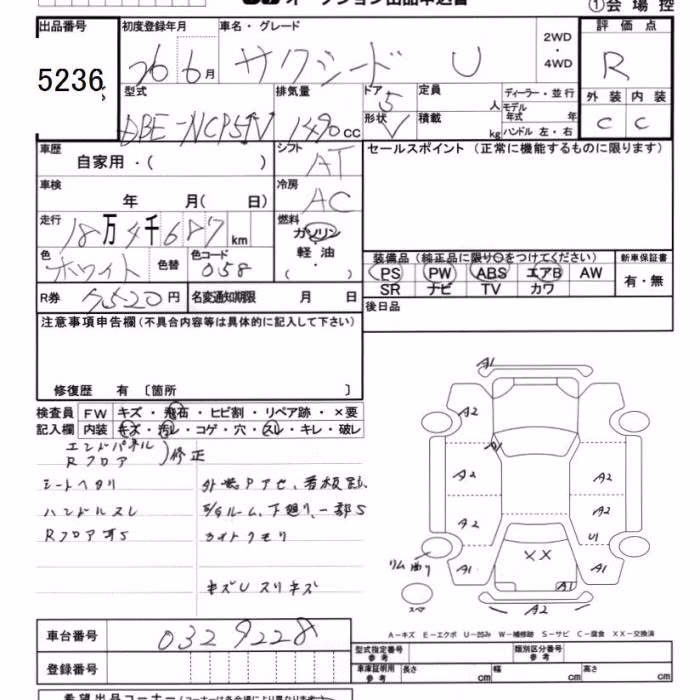 オークション出品申込書 ①会場控
出品番号 初度登録年月 車名・グレード 2WD ・ 4WD 評価点
5236 26 6月 サクシード U R
型式 排気量 ドア 5 定員 人 ディーラー・並行 外装 内装
DBE-NCP51V 1490cc 形状 V 積載 kg モデル年式 年 ハンドル 左・右 C C
車歴 自家用・( ) シフト AT セールスポイント (正常に機能するものに限ります)
車検 年 月( 日) 冷房 AC
走行 18万4千687km 燃料 ガソリン
色 ホワイト 色替 色コード 058 軽油 ( ・ )
装備品 (純正品に限り○をつけてください) 新車保証書
PS PW ABS エアB AW 有・無
SR ナビ TV カワ
R券 円 名変通知期限 月 日 後日品
注意事項申告欄 (不具合内容等は具体的に記入して下さい)
修復歴 有 〔箇所 〕
検査員 FW キズ・飛石・ヒビ割・リペア跡・×要
記入欄 内装 キズ・汚レ・コゲ・穴・スレ・キレ・破レ
エンドパネル
Rフロア )修正
シートヘタリ
ハンドルスレ 下廻り、一部S
Rフロア ライトクモリ
キズUスリキズ
A1
A2
A1
A2 A2
A2 A2
U1
リム曲り A1 XX A1
A1
スペア A2
A-キズ E-エクボ U-凹み W-補修跡 S-サビ C-腐食 XX-交換済
車台番号 0329228
型式指定番号 参考 類別区分番号 参考
登録番号
車庫証明用 参考 長さ cm 幅 cm 高さ cm
希望出品コーナー